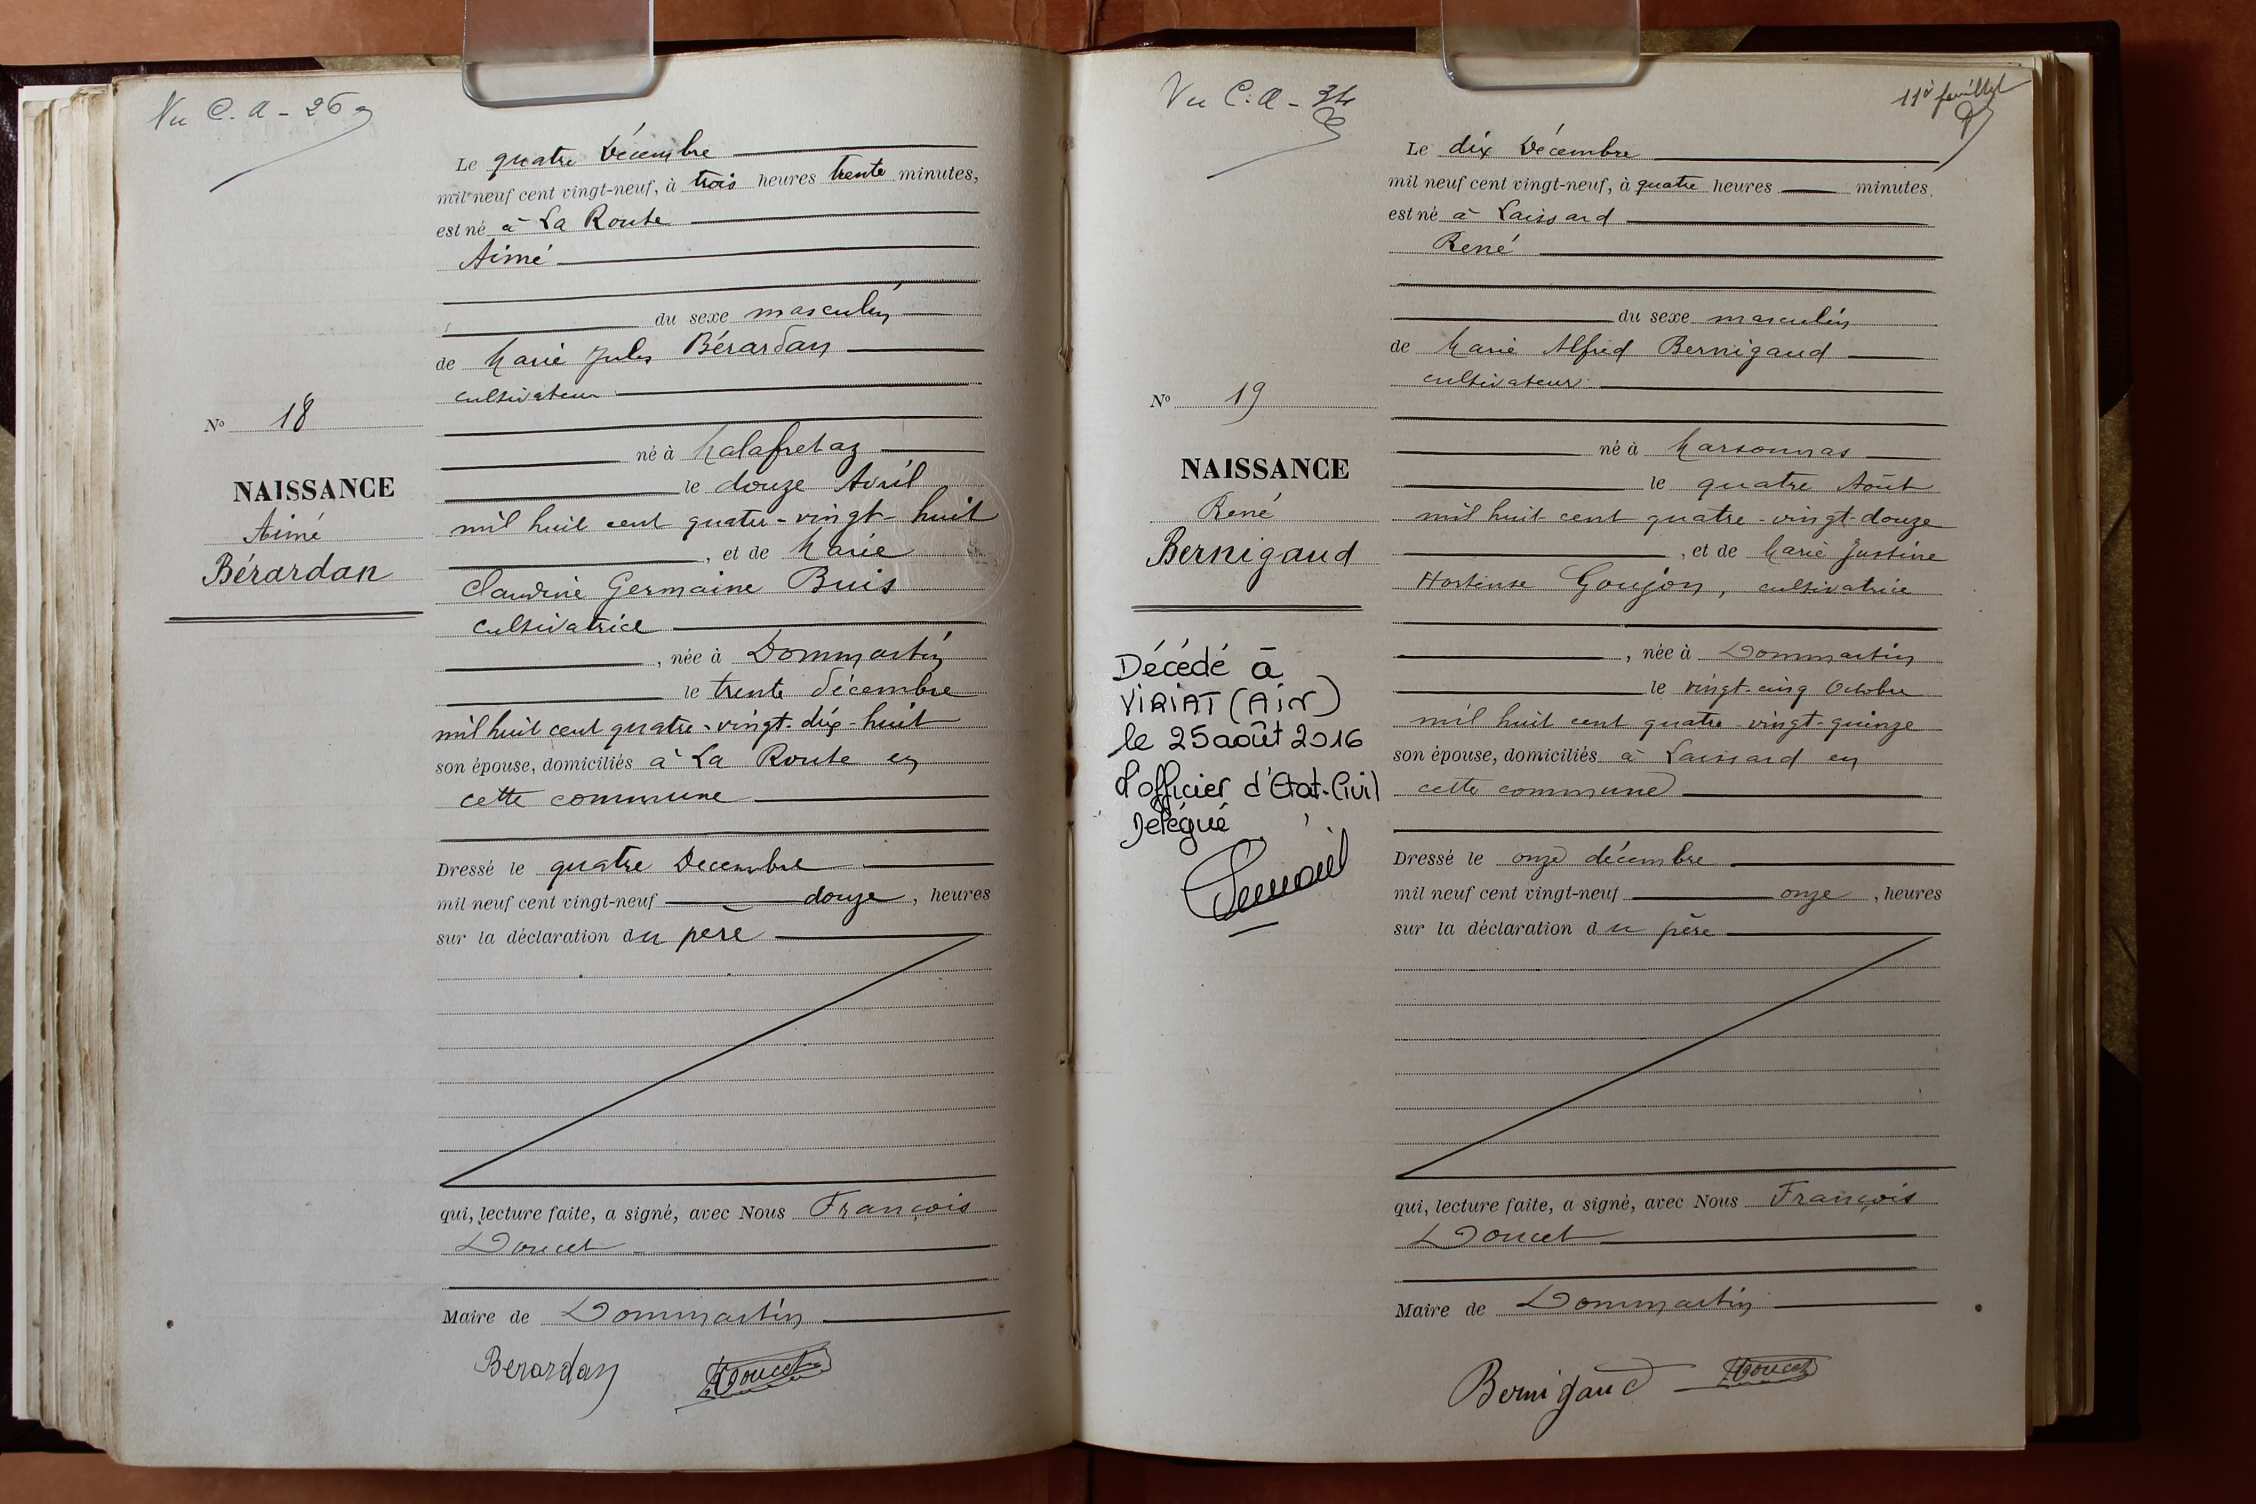 Vu C. A - 26
Le quatre Décembre
mil neuf cent vingt-neuf, à trois heures trente minutes,
est né à La Route
Aimé
du sexe masculin
de Marie Jules Bérardan
cultivateur
né à Malafretaz
le douze Avril
mil huit cent quatre-vingt-huit
, et de Marie
Claudine Germaine Buis
cultivatrice
, née à Dommartin
le trente décembre
mil huit cent quatre-vingt-dix-huit
son épouse, domiciliés à La Route en
cette commune
Dressé le quatre Decembre
mil neuf cent vingt-neuf douze, heures
sur la déclaration du père
qui, lecture faite, a signé, avec Nous François
Doucet
Maire de Dommartin
Berardan Doucet
No 18
NAISSANCE
Aimé
Bérardan
Vu C. A - 34
11e feuillet
Le dix Décembre
mil neuf cent vingt-neuf, à quatre heures minutes.
est né à Laissard
René
du sexe masculin
de Marie Alfred Bernigaud
cultivateur
né à Marsonnas
le quatre Août
mil huit cent quatre-vingt-douze
, et de Marie Justine
Hortense Goujon, cultivatrice
, née à Dommartin
le vingt-cinq Octobre
mil huit cent quatre-vingt-quinze
son épouse, domiciliés à Laissard en
cette commune
Dressé le onze décembre
mil neuf cent vingt-neuf onze, heures
sur la déclaration du père
qui, lecture faite, a signé, avec Nous François
Doucet
Maire de Dommartin
Bernigaud Doucet
No 19
NAISSANCE
René
Bernigaud
Décédé à
VIRIAT (Ain)
le 25 août 2016
L'officier d'Etat-Civil
Délégué